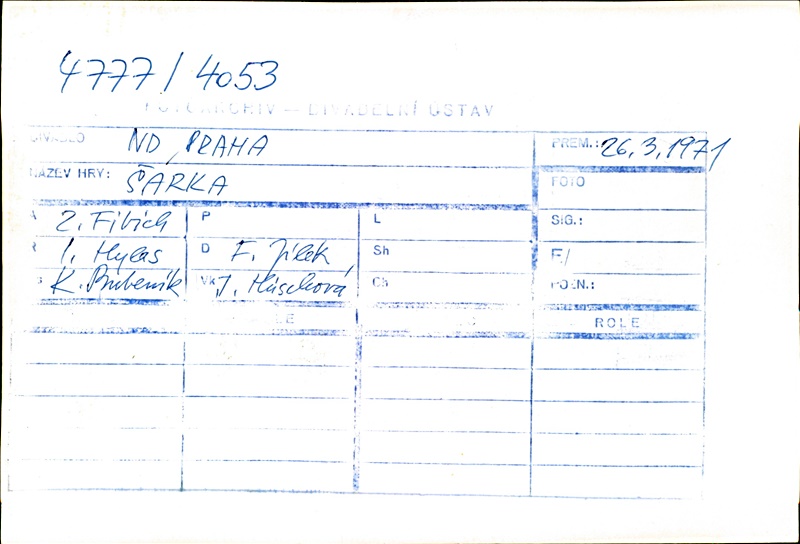 4777/4053
FOTOARCHIV — DIVADELNÍ ÚSTAV
DIVADLO ND, PRAHA PREM.: 26.3.1971
NÁZEV HRY: ŠARKA FOTO
A Z. Fibich P L SIG.:
R I. Hylas D F. Jílek Sh F/
S K. Bubeník Vk Ch POZN.:
ROLE